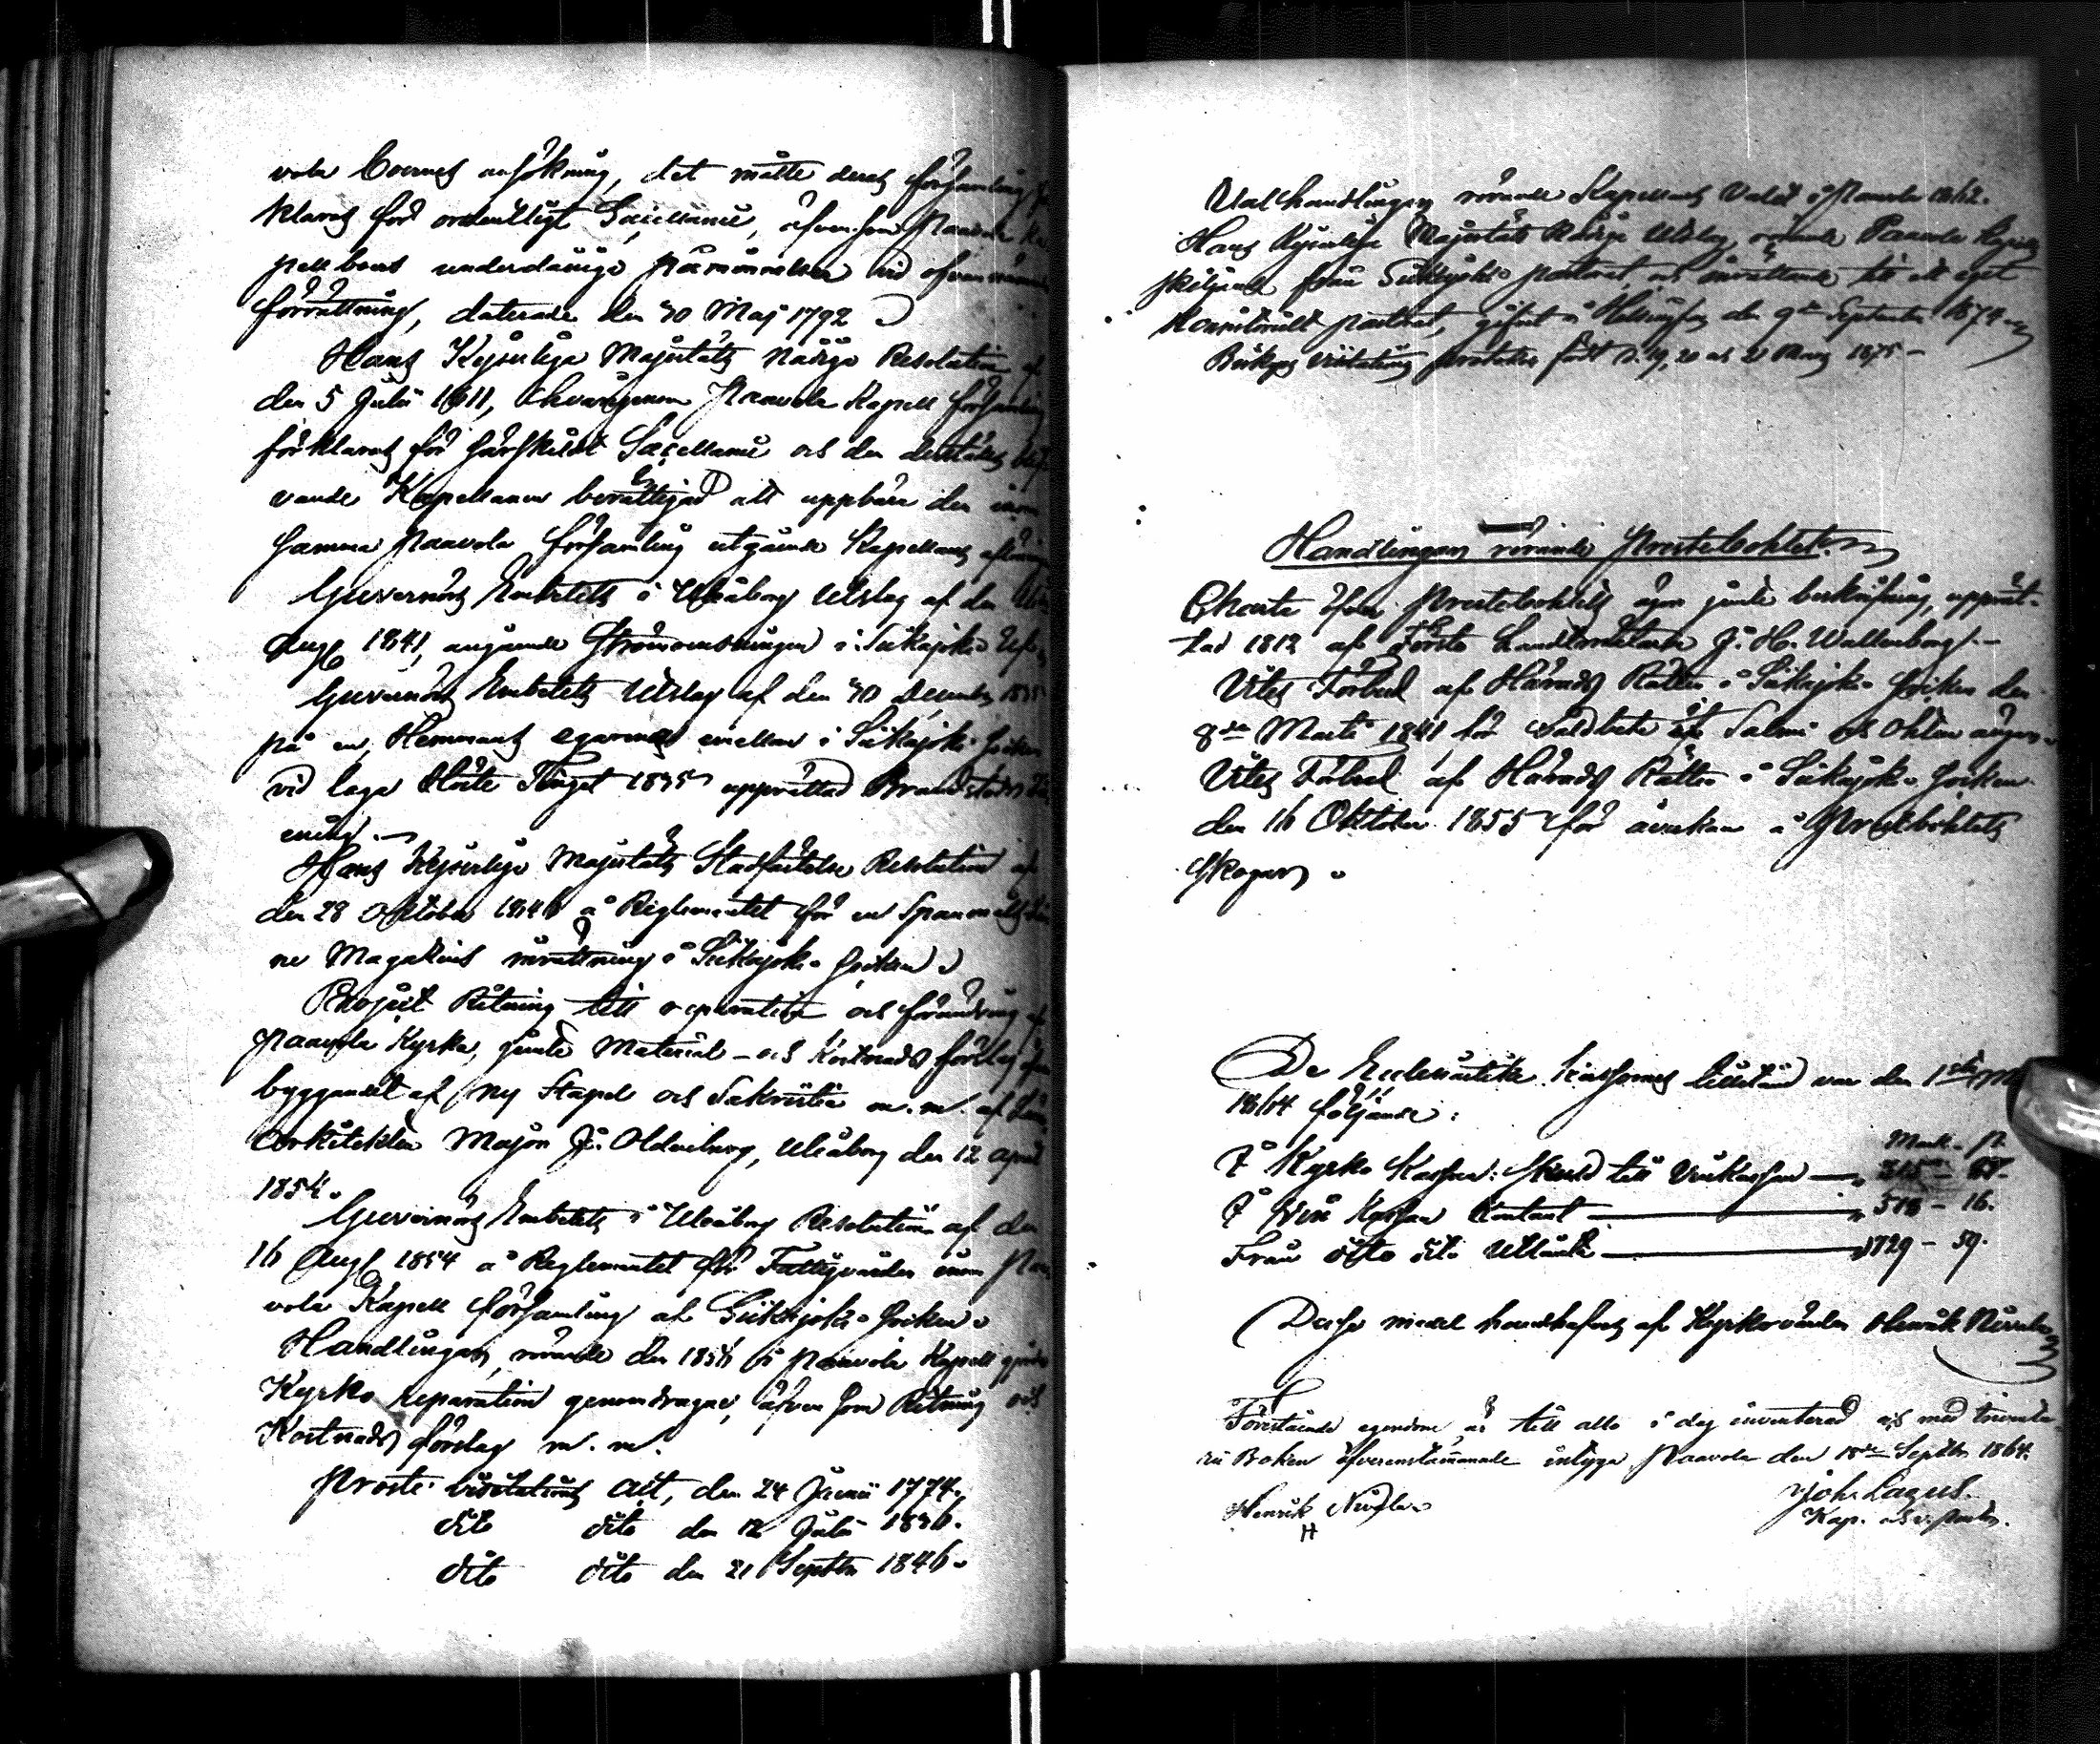 vola Boernes ansökning, det måtte deras församling
klaras för ordentligt Sacellanie, äfvensom Paavola Ka
pell boers underdånige påminnelser vid ofvannämnde
förrättning, daterade den 30 Maj 1792
Hans Kejserliga Majestäts Nådiga Resolution af
den 5 Julii 1811, hvarigenom Paavola Kapell församling
förklaras för särskildt Sacellanie och den derstädes
vande Kapellanen berättigad att uppbära den inom
samma Paavola församling utgående Kapellans aflöning
Guvernörs Embetets i Uleåborg Utslag af den
Aug 1841, angående Strömrensningen i Siikajoki Elf
Guvernörs Embetets Utslag af den 30 December 1835
på en, Hemmans egarne emellan i Siikajoki Socken
vid laga Höste Tinget 1835 upprättad Brandstods
ening.
Hans Kejserliga Majestäts Stadfästelse Resolution af
den 28 Oktober 1846 å Reglementet för en Spanmåls Lå
ne Magasins inrättning i Siikajoki Socken
Project Ritning till reparation och förändring af
Paavola Kyrka, jemte Material- och Kostnads förslag öfver
byggandet af ny Stapel och Sakristia m.m. af Läns
Arkitekten Majoren J. Oldenburg, Uleåborg den 12 April
1854.
Guvernörs Embetets i Uleåborg Resolution af den
16 Aug 1854 å Reglementet för Fattigvården inom Paa
vola Kapell församling af Siikajoki Socken
Handlingar, rörande den 1856 i Paavola Kapell gjorda
Kyrko reparation genomdragne, äfven som Ritning och
Kostnads förslag m.m.
Proste visitations Act, den 24 Junii 1774.
dito dito den 12 Julii 1836.
dito dito den 21 Septbr 1846.
Valhandlingar rörande Kapellans valet i Paavola 1862.
Hans Kejserliga Majestäts Nådiga Utslag, rörande Paavola Kapells
skiljande från Siikajoki pastorat och inrättande till ett eget
Konsistoriellt pastorat, gifvet i Helsingfors den 9de September 1874
Biskops Visitations protokoll hållet d. 19, 20 och 21 Mars 1875
Handlingar rörande Prestebohlet.
Charta öfver Prestebohlets egor jemte beskrifning, upprät-
tad 1812 af Förste Landtmätare J. H. Wallenborg.
Vites Förbud af Härads Rätten i Siikajoki Socken den
8de Martii 1841 för åt Salmi och
Vites Förbud af Härads Rätten i Siikajoki Socken
den 16 Oktober 1855 för åverkan å Prestbohlets
skogar
De Ecclesiastike Kassornes tillstånd var den 1sta Maj
1864 följande:
Mark. p.
I Kyrko Kassan: Skuld till Vinkassan
I Vin Kassan Contant 518 - 16.
Från dito dito Utlånte 1729 - 59.
Desse medel handhafves af Kyrkovärden Henrik Niirola
Förestående egendom är till alla i dag inventerad och med Inventa
rii Boken öfverensstämmande intyga Paavola den 18de Septbr 1864.
Joh. Lagus.
Henrik
Kap. och v. pastor.
H